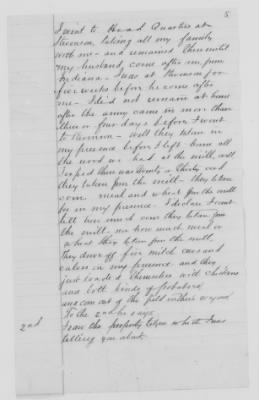 5
I went to Head Quarters at
Stevenson, taking all my family
with me - and remained there until
my husband, come after me from
Indiana - I was at Stevenson for
five weeks before he come after
me - I did not remain at home
after the army came in more than
three or four days before I went
to Stevenson - well they taken in
my presence before I left home all
the wood we had at the mill, will
I expect there was twenty or thirty cords
they taken from the mill - they taken
corn meal and wheat from the mill
too in my presence. I declare I cant
tell how much corn they taken from
the mill, nor how much meal or
wheat they taken from the mill
they drove off five milch cows and
calves in my presence and they
just loaded themselves with chickens
and both kinds of potatoes
and corn out of the field in their wagons
To the 2nd he says
2nd I saw the property taken which I was
telling you about.